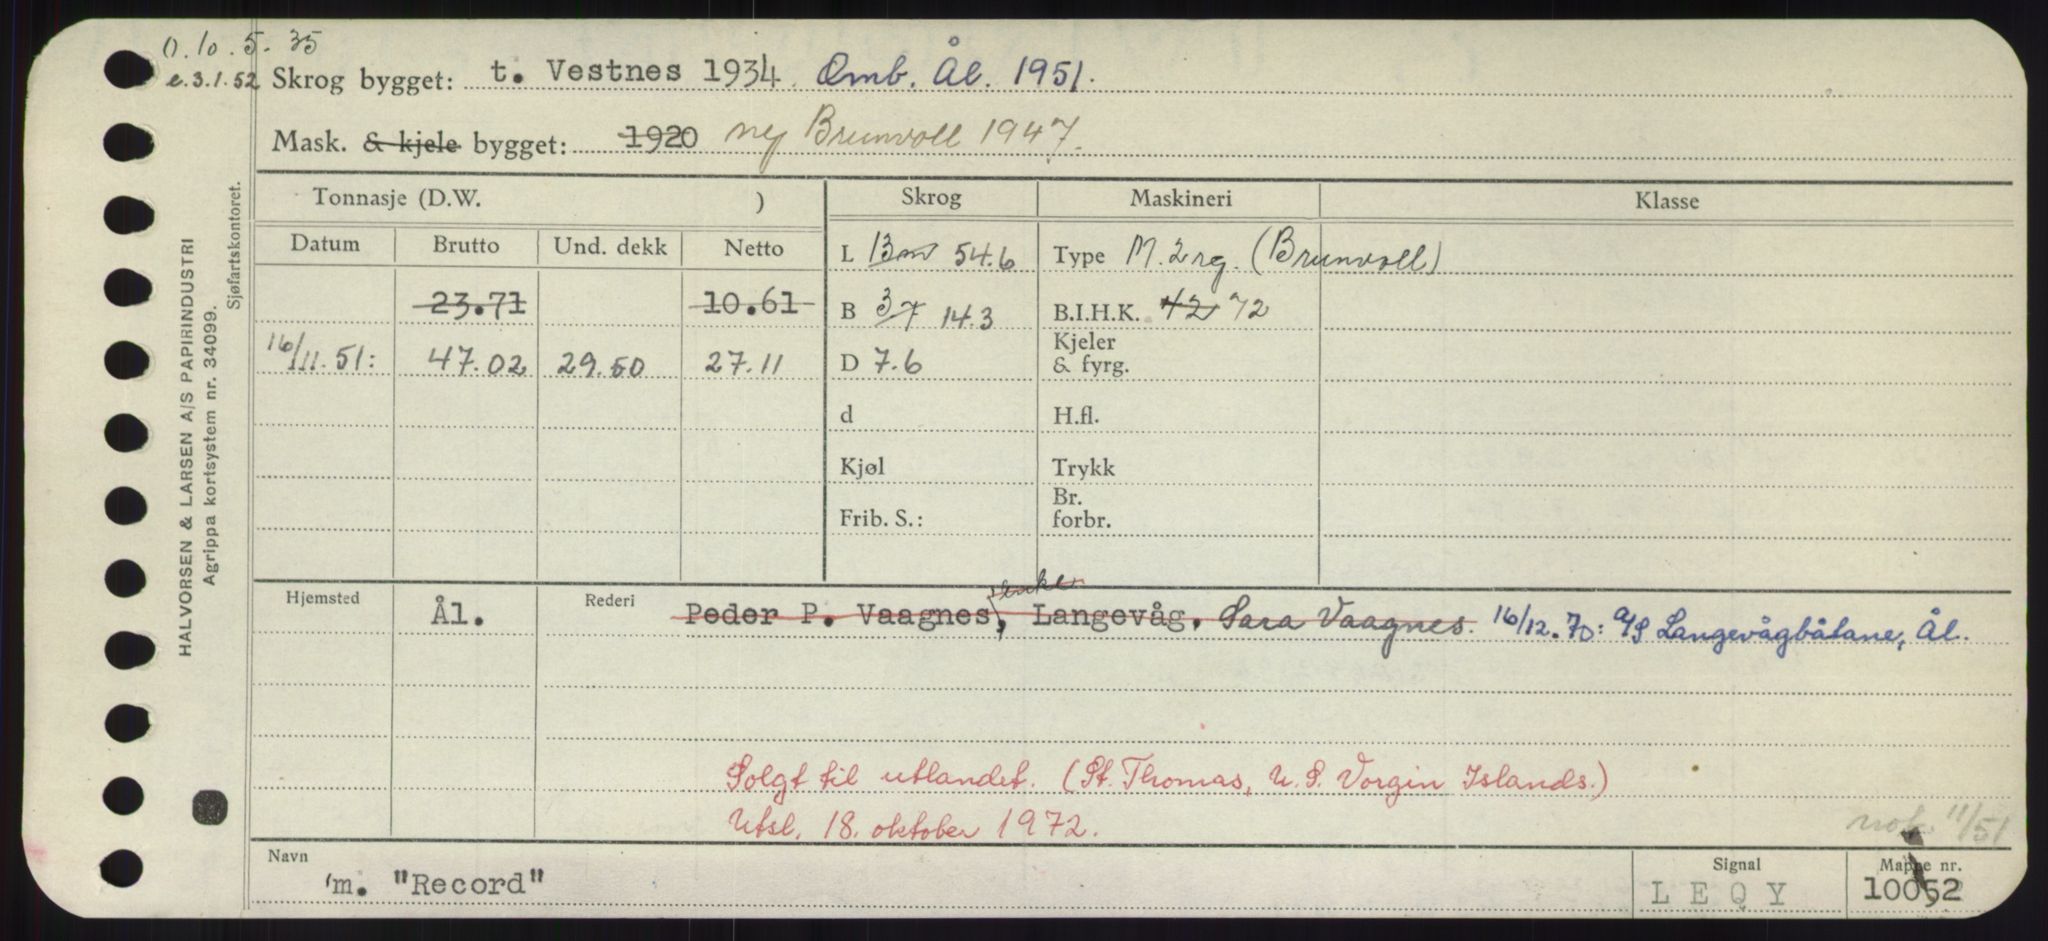 O. 10. 5. 35
e. 3.1.52 Skrog bygget: t. Vestnes 1934. Omb. Ål. 1951.
Mask. & kjele bygget: 1920 ny Brunvoll 1947.
Tonnasje (D.W. ) Skrog Maskineri Klasse
Datum Brutto Und. dekk Netto
L 13 m 54.6 Type M. 2 rg. (Brunvoll)
23.71 10.61 B 3/7 14.3 B.I.H.K. 42 72
16/11. 51: 47.02 29.50 27.11 D 7.6 Kjeler & fyrg.
d H.fl.
Kjøl Trykk
Frib. S.: Br. forbr.
enke
Hjemsted Ål. Rederi Peder P. Vaagnes, Langevåg. Sara Vaagnes. 16/12. 70: A/S Langevågbåtane, Ål.
Solgt til utlandet. (St. Thomas, U. S. Vorgin Islands.)
Utsl. 18. oktober 1972.
11/51
Navn m. "Record" Signal LEQY Mappe nr. 10052
HALVORSEN & LARSEN A/S PAPIRINDUSTRI
Agrippa kortsystem nr. 34099.
Sjøfartskontoret.